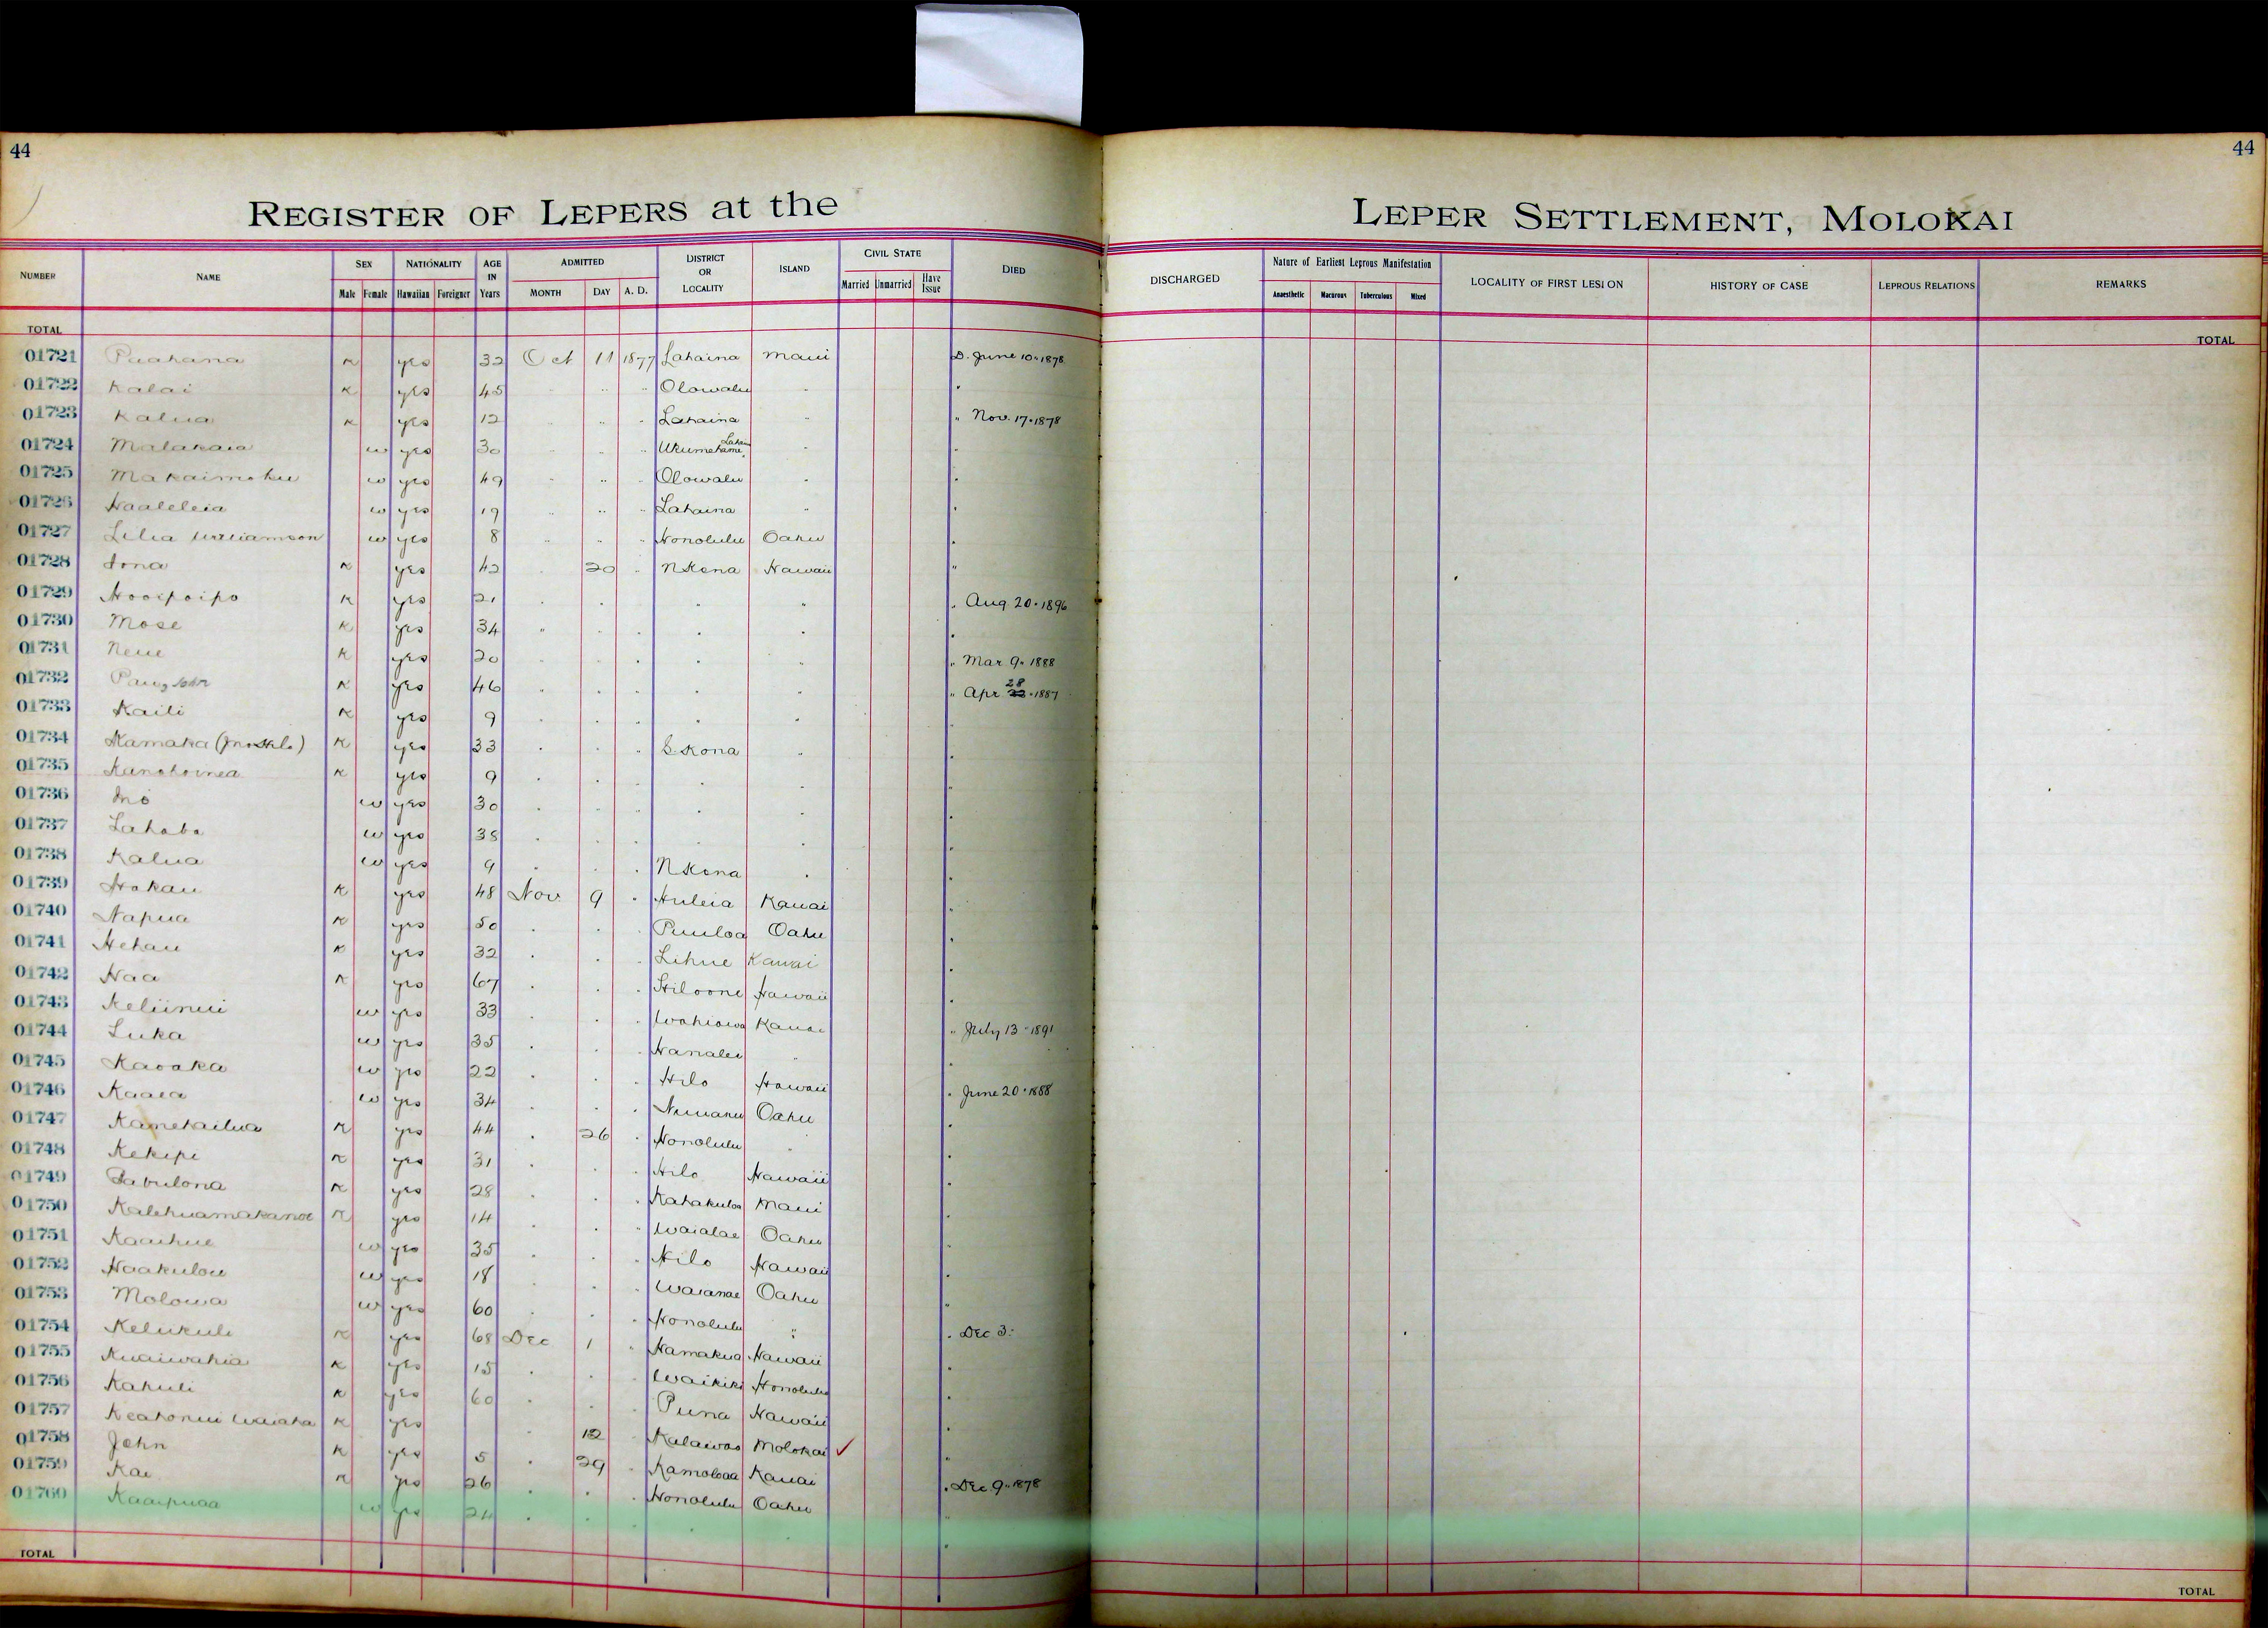 44
44
REGISTER OF LEPERS at the LEPER SETTLEMENT, MOLOKAI
NUMBER NAME SEX NATIONALITY AGE IN Years ADMITTED DISTRICT OR LOCALITY ISLAND CIVIL STATE DIED DISCHARGED Nature of Earliest Leprous Manifestation LOCALITY OF FIRST LESION HISTORY OF CASE LEPROUS RELATIONS REMARKS
Male Female Hawaiian Foreigner MONTH DAY A. D. Married Unmarried Have Issue Anaesthetic Macurous Tuberculous Mixed
TOTAL TOTAL
01721 Puahana K yes 32 Oct 11 1877 Lahaina Maui D. June 10 " 1878
01722 Kalai K yes 45 " " Olowalu " "
01723 Kalua K yes 12 " " " Lahaina " " Nov. 17 " 1878
01724 Malakaia w yes 30 " " " Ukumehame, " "
01725 Makaimoku w yes 49 " " " Olowalu " "
01726 Haaleleia w yes 19 " " " Lahaina " "
01727 Lilia Williamson w yes 8 " " " Honolulu Oahu "
01728 Iona K yes 42 " 20 " N Kona Hawaii "
01729 Hooipoipo K yes 21 " " " " " Aug. 20 " 1896
01730 Mose K yes 34 " " " " " "
01731 Neue K yes 20 " " " " " " Mar 9 " 1888
01732 John K yes 46 " " " " " " Apr 28 " 1887
01733 Kaili K yes 9 " " " " " "
01734 Kamaka K yes 33 " " " S. Kona " "
01735 K yes 9 " " " " " "
01736 w yes 30 " " " " " "
01737 w yes 38 " " " " " "
01738 Kalua w yes 9 " " " N Kona " "
01739 Hokau K yes 48 Nov 9 " Huleia Kauai "
01740 Napua K yes 50 " " " Puuloa Oahu "
01741 Hehau K yes 32 " " " Lihue Kauai "
01742 Naa K yes 67 " " " Hiloone Hawaii "
01743 Keliinui w yes 33 " " " Wahiawa Kauai " July 13 " 1891
01744 Luka w yes 35 " " " Hanalei " "
01745 Kaoaka w yes 22 " " " Hilo Hawaii " June 20 " 1888
01746 Kaaea w yes 34 " " " Nuuanu Oahu "
01747 Kamehailua K yes 44 " 26 " Honolulu " "
01748 Kekipi K yes 31 " " " Hilo Hawaii "
01749 Zabulona K yes 28 " " " Kahakuloa Maui "
01750 Kalehuamakanoe K yes 14 " " " Waialae Oahu "
01751 Kaaihue w yes 35 " " " Hilo Hawaii "
01752 Haakulou w yes 18 " " " Waianae Oahu "
01753 Molowa w yes 60 " " " Honolulu " " Dec 3.
01754 Kelikuli K yes 68 Dec 1 " Hamakua Hawaii "
01755 Kuaiwahia K yes 15 " " Waikiki Honolulu "
01756 Kahuli K yes 60 " " Puna Hawaii "
01757 Keahonui Waiaha K yes " 12 Kalawao Molokai ✓ "
01758 John K yes 5 " 29 " Kamoloaa Kauai " Dec 9 " 1878
01759 Kai K yes 26 " " " Honolulu Oahu "
01760 Kaaipuaa w yes 24 " " " " " "
TOTAL TOTAL